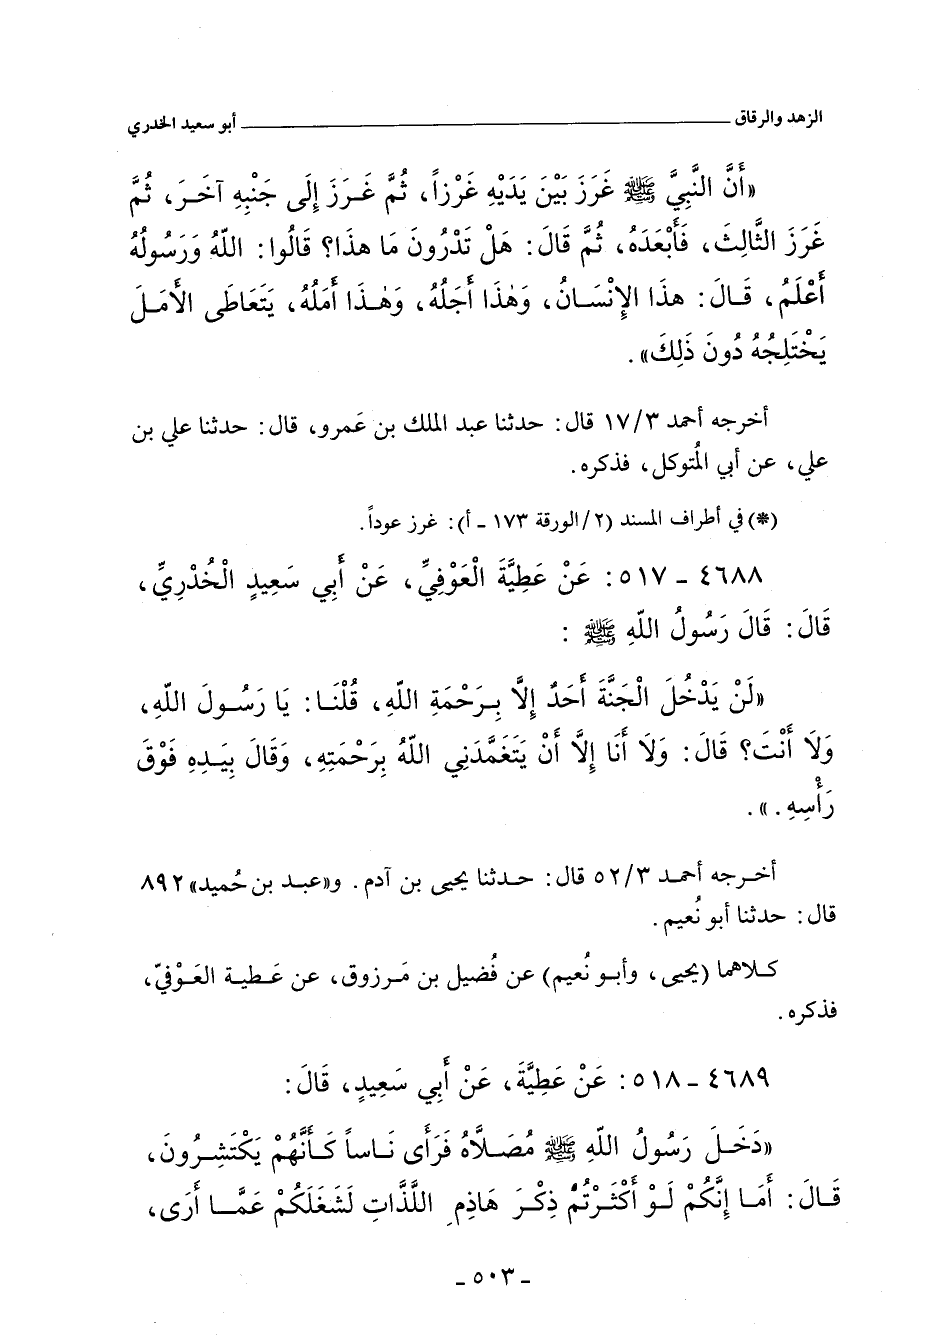 الزهد والرقاق ــــــ أبو سعيد الخدري
«أَنَّ النَّبِيَّ ﷺ غَرَزَ بَيْنَ يَدَيْهِ غَرْزاً، ثُمَّ غَرَزَ إِلَى جَنْبِهِ آخَرَ، ثُمَّ
غَرَزَ الثَّالِثَ، فَأَبْعَدَهُ، ثُمَّ قَالَ: هَلْ تَدْرُونَ مَا هذَا؟ قَالُوا: اللّهُ وَرَسُولُهُ
أَعْلَمُ، قَالَ: هذَا الإِنْسَانُ، وَهٰذَا أَجَلُهُ، وَهٰذَا أَمَلُهُ، يَتَعَاطَى الأَمَلَ
يَخْتَلِجُهُ دُونَ ذَلِكَ».
أخرجه أحمد ١٧/٣ قال: حدثنا عبد الملك بن عَمرو، قال: حدثنا علي بن
علي، عن أبي المُتوكل، فذكره.
(*) في أطراف المسند (٢/الورقة ١٧٣ ـ أ): غرز عوداً.
٤٦٨٨ ـ ٥١٧: عَنْ عَطِيَّةَ الْعَوْفِيِّ، عَنْ أَبِي سَعِيدٍ الْخُدْرِيِّ،
قَالَ: قَالَ رَسُولُ اللّهِ ﷺ :
«لَنْ يَدْخُلَ الْجَنَّةَ أَحَدٌ إِلاَّ بِرَحْمَةِ اللّهِ، قُلْنَا: يَا رَسُولَ اللّهِ،
وَلاَ أَنْتَ؟ قَالَ: وَلاَ أَنَا إِلاَّ أَنْ يَتَغَمَّدَنِي اللّهُ بِرَحْمَتِهِ، وَقَالَ بِيَدِهِ فَوْقَ
رَأْسِهِ.».
أخرجه أحمد ٥٢/٣ قال: حدثنا يحيى بن آدم. و«عبد بن حُميد» ٨٩٢
قال: حدثنا أبو نُعيم.
كلاهما (يحيى، وأبو نُعيم) عن فُضيل بن مَرزوق، عن عَطية العَوْفيّ،
فذكره.
٤٦٨٩ ـ ٥١٨: عَنْ عَطِيَّةَ، عَنْ أَبِي سَعِيدٍ، قَالَ:
«دَخَلَ رَسُولُ اللّهِ ﷺ مُصَلاَّهُ فَرَأَى نَاساً كَأَنَّهُمْ يَكْتَشِرُونَ،
قَالَ: أَمَا إِنَّكُمْ لَوْ أَكْثَرْتُمْ ذِكْرَ هَاذِمِ اللَّذَّاتِ لَشَغَلَكُمْ عَمَّا أَرَى،
ـ ٥٠٣ ـ